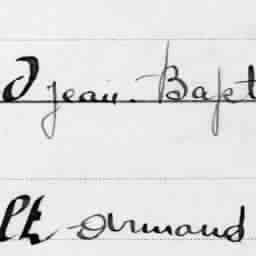 Jean-Bapt
Armand